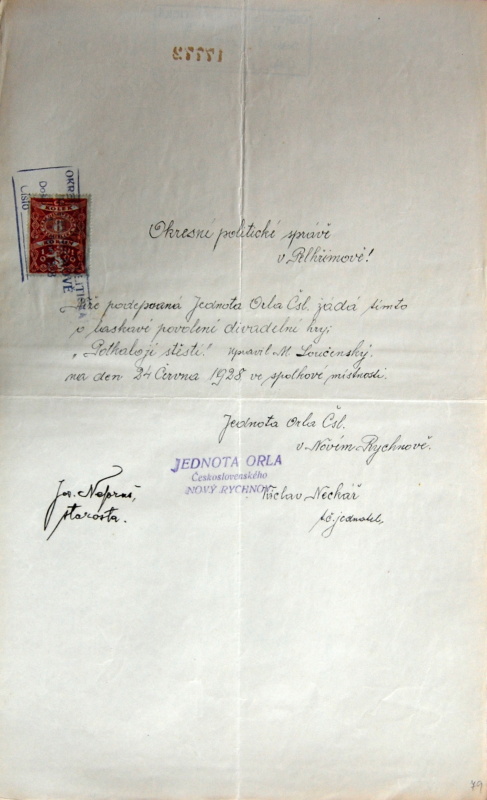 27771
KOLEK
8
KORUN
Číslo
Okresní politické správě
v Pelhřimově!
Níže podepsaná Jednota Orla Čsl. žádá tímto
o laskavé povolení divadelní hry:
"Potkaloť je štěstí." upravil M. Loučenský.
na den 24 Června 1928 ve spolkové místnosti.
Jednota Orla Čsl.
v Novém Rychnově.
JEDNOTA ORLA
Československého
NOVÝ RYCHNOV
Václav Nechář
t.č. jednatel,
Jos.
starosta.
79